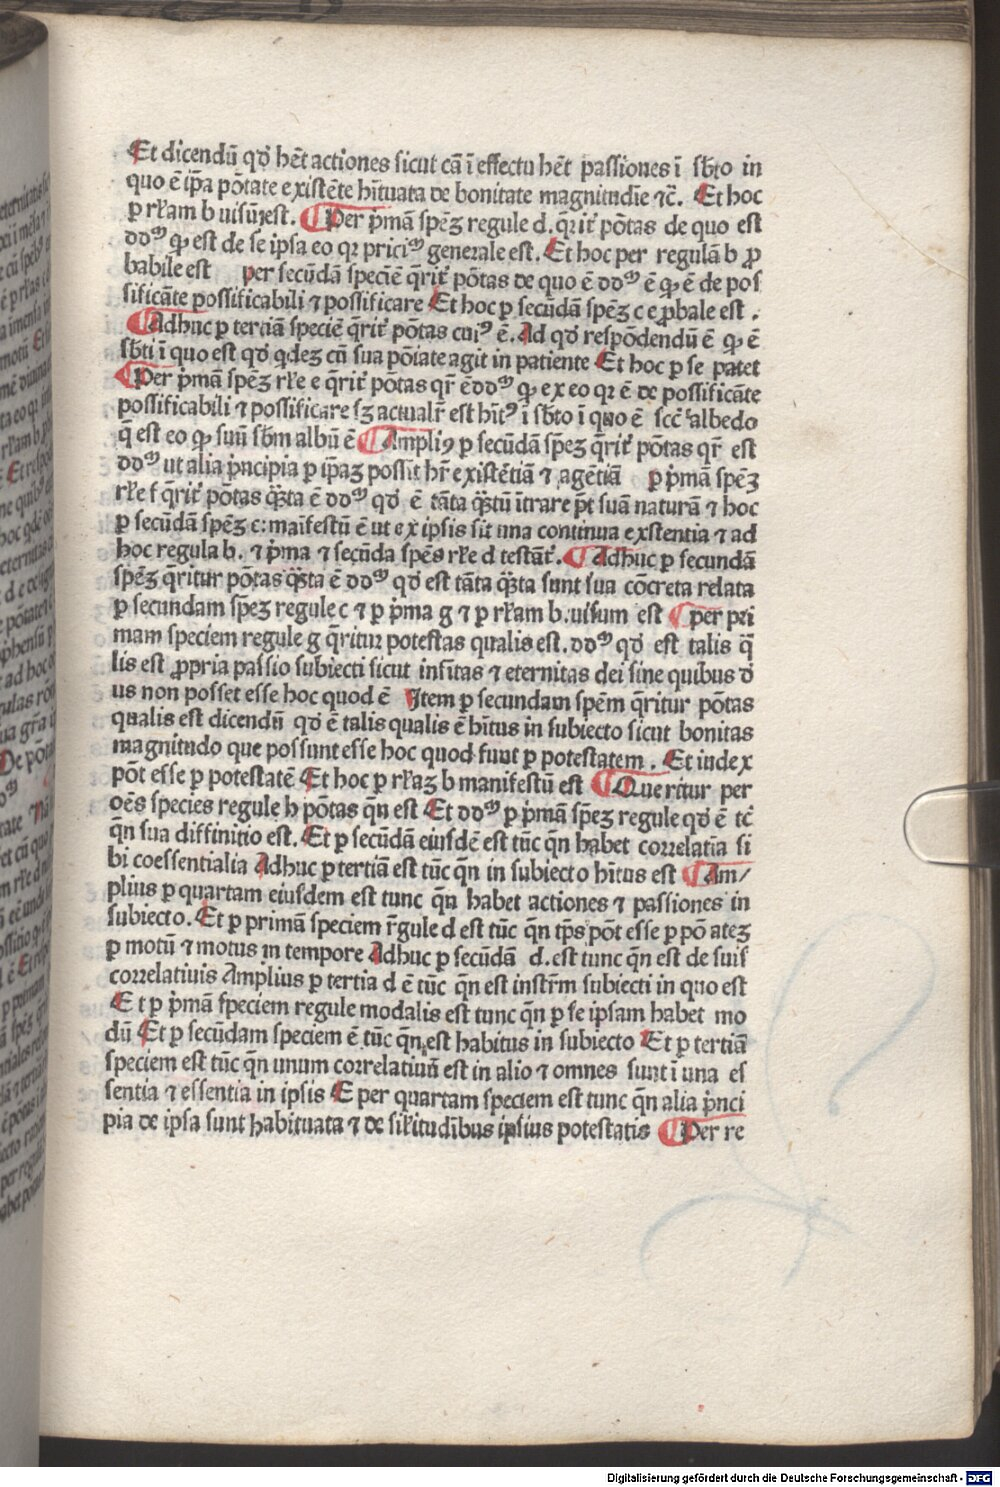 Et dicendū qď hēt actiones sicut cā ī effectu hēt passiones ī sb̄to in
quo ē ip̄a pōtate existēte hītuata de bonitate magnitudīe ⁊c̄. Et hoc
p rl̄am b uisum est. ¶ Per p̄mā spēꝫ regule d. q̄rit̄ pōtas de quo est
ddꝰ qꝫ est de se ipsa eo qꝛ prīciꝰ generale est. Et hoc per regulā b ꝓ
babile est per secūdā speciē q̄rit̄ pōtas de quo ē ddꝰ ē qꝫ ē de pos
sificāte possificabili ⁊ possificare Et hoc p secūdā spēꝫ c eꝓbale est .
¶ Adhuc p tertiā speciē q̄rit̄ pōtas cuiꝰ ē. Ad qď respōdendū ē qꝫ ē
sb̄ti ī quo est qď qdeꝫ cū sua pōtate agit in patiente Et hoc p se patet
¶ Per p̄mā spēꝫ rl̄e e q̄rit̄ pōtas qr̄ ē ddꝰ qꝫ ex eo qꝛ ē de possificāte
possificabili ⁊ possificare sꝫ actualr̄ est hītꝰ ī sb̄to ī quo ē sic̄ albedo
q̄ est eo qꝫ suū sb̄m albū ē ¶ Ampliꝰ p secūdā sp̄eꝫ q̄rit̄ pōtas qr̄ est
ddꝰ ut alia p̄ncipia p ip̄aꝫ possit hr̄ existētiā ⁊ agētiā p p̄mā spēꝫ
rl̄e f q̄rit̄ pōtas q̄sta ē ddꝰ qď ē tāta q̄stū ītrare p̄t suā naturā ⁊ hoc
p secūdā spēꝫ c: maīfestū ē ut ex ipsis sit una continua exstentia ⁊ ad
hoc regula b. ⁊ p̄ma ⁊ secūda spēs rl̄e d testāt̄. ¶ Adhuc p secundā
spēꝫ q̄ritur pōtas q̄sta ē ddꝰ qď est tāta q̄sta sunt sua cōcreta relata
p secundam sp̄eꝫ regule c ⁊ p p̄ma g ⁊ p rl̄am b. uisum est ¶ per pri
mam speciem regule g q̄ritur potestas qualis est. ddꝰ qď est talis q̄
lis est ꝓpria passio subiecti sicut infītas ⁊ eternitas dei sine quibus d̄
us non posset esse hoc quod ē Item p secundam spēm q̄ritur pōtas
qualis est dicendū qď ē talis qualis ē hītus in subiecto sicut bonitas
magnitudo que possunt esse hoc quod sunt p potestatem . Et iudex
pōt esse p potestatē Et hoc p rl̄aꝫ b manifestū est ¶ Queritur per
oēs species regule h pōtas qn̄ est Et ddꝰ p p̄mā sp̄eꝫ regule qď ē tc̄
qn̄ sua diffinitio est. Et p secūdā eiusdē est tūc qn̄ habet correlatia si
bi coessentialia Adhuc p tertiā est tūc qn̄ in subiecto hītus est ¶ Am/
plius p quartam eiusdem est tunc qn̄ habet actiones ⁊ passiones in
subiecto. Et p primā speciem r̄gule d est tūc qn̄ tp̄s pōt esse p pō ateꝫ
p motū ⁊ motus in tempore Adhuc p secūdā d. est tunc qn̄ est de suis
correlatiuis Amplius p tertia d ē tūc qn̄ est instr̄m subiecti in quo est
Et p p̄mā speciem regule modalis est tunc qn̄ p se ipsam habet mo
dū Et p secūdam speciem ē tūc qn̄ est habitus in subiecto Et p tertiā
speciem est tūc qn̄ unum correlatiuū est in alio ⁊ omnes sunt ī una es
sentia ⁊ essentia in ipsis E per quartam speciem est tunc qn̄ alia p̄nci
pia de ipsa sunt habituata ⁊ de sil̄itudībus ipsius potestatis ¶ Per re
Digitalisierung gefördert durch die Deutsche Forschungsgemeinschaft - DFG